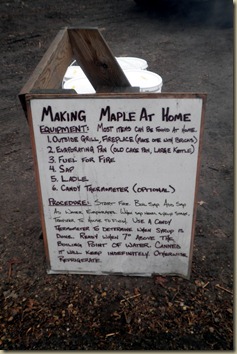 MAKING MAPLE AT HOME
EQUIPMENT: MOST ITEMS CAN BE FOUND AT HOME
1. OUTSIDE GRILL, FIREPLACE (MAKE ONE W/ BRICKS)
2. EVAPORATING PAN (OLD CAKE PAN, LARGE KETTLE)
3. FUEL FOR FIRE
4. SAP
5. LADLE
6. CANDY THERMOMETER (OPTIONAL)
PROCEDURE: START FIRE BOIL SAP. ADD SAP
AS WATER EVAPORATES. WHEN SAP NEARS SYRUP STAGE,
TRANSFER TO HOUSE TO FINISH. USE A CANDY
THERMOMETER TO DETERMINE WHEN SYRUP IS
DONE. READY WHEN 7° ABOVE THE
BOILING POINT OF WATER. CANNED
IT WILL KEEP INDEFINITELY. OTHERWISE
REFRIGERATE.